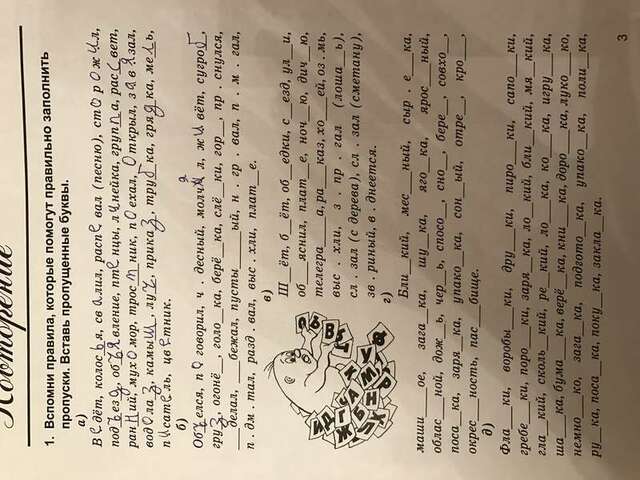 Повторение
1. Вспомни правила, которые помогут правильно заполнить
пропуски. Вставь пропущенные буквы.
а)
Ведёт, колосья, свалил, распевал (песню), сторожил,
подъезд, объявление, птенцы, линейка, группа, рассвет,
ранний, мухомор, тростник, поехал, открыл, завязал,
водолаз, камыш, луч, приказ, трубка, грядка, мель,
писатель, цветник.
б)
Объелся, поговорил, ч . десный, молчал, живёт, сугроб,
груз, огонё__, голо__ка, берё__ка, слё__ки, гор__, пр . снулся,
__делал, __бежал, пусты__ __ый, н . гр . вал, п . м . гал,
п . дм . тал, разд . вал, выс . хли, плат__е.
в)
Ш__ёт, б__ёт, об__едки, с__езд, ул__и,
об__яснил, плат__е, ноч__ю, дич__ю,
телегра__а, ра__каз, хо__ей, оз . мь,
выс . хли, з . пр . гал (лоша__ь),
сл . зал (с дерева), сл . зал (сметану),
зв . риный, в . днеется.
г)
Бли__кий, мес__ный, сыр . е__ка,
маши__ое, зага__ка, шу__ка, яго__ка, ярос__ный,
облас__ной, дож__ь, чер__ь, спосо__, сно__, бере__, совхо__,
поса__ка, заря__ка, упако__ка, сон__ый, отре__, кро__,
окрес__ность, пас__бище.
д)
Фла__ки, воробы__ки, дру__ки, пиро__ки, сапо__ки,
гребе__ки, поро__ки, заря__ка, ло__кий, бли__кий, мя__кий,
гла__кий, сколь__кий, ре__кий, ло__ка, ко__ка, игру__ка,
ша__ка, бума__ка, верё__ка, кни__ка, доро__ка, луко__ко,
немно__ко, зага__ка, подгото__ка, упако__ка, поли__ка,
ру__ка, поса__ка, поку__ка, закла__ка.
3